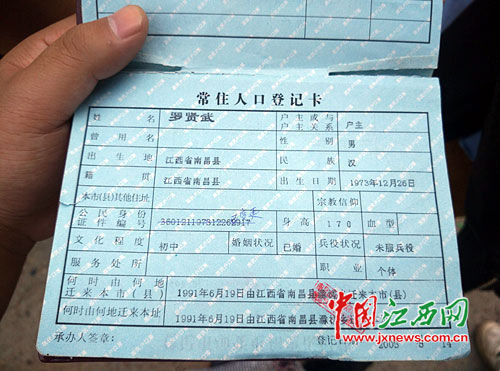 常住人口登记卡
姓 名 罗贤武 户主或与户主关系 户主
曾用名 性 别 男
出生地 江西省南昌县 民 族 汉
籍 贯 江西省南昌县 出生日期 1973年12月26日
本市(县)其他住址 宗教信仰
公民身份证件编号 身 高 170 血型
文化程度 初中 婚姻状况 已婚 兵役状况 未服兵役
服务处所 职 业 个体
何时由何地迁来本市(县) 1991年6月19日由江西省南昌县 迁来本市(县)
何时由何地迁来本址 1991年6月19日由江西省南昌县
承办人签章: 登记日期
中国江西网
www.jxnews.com.cn